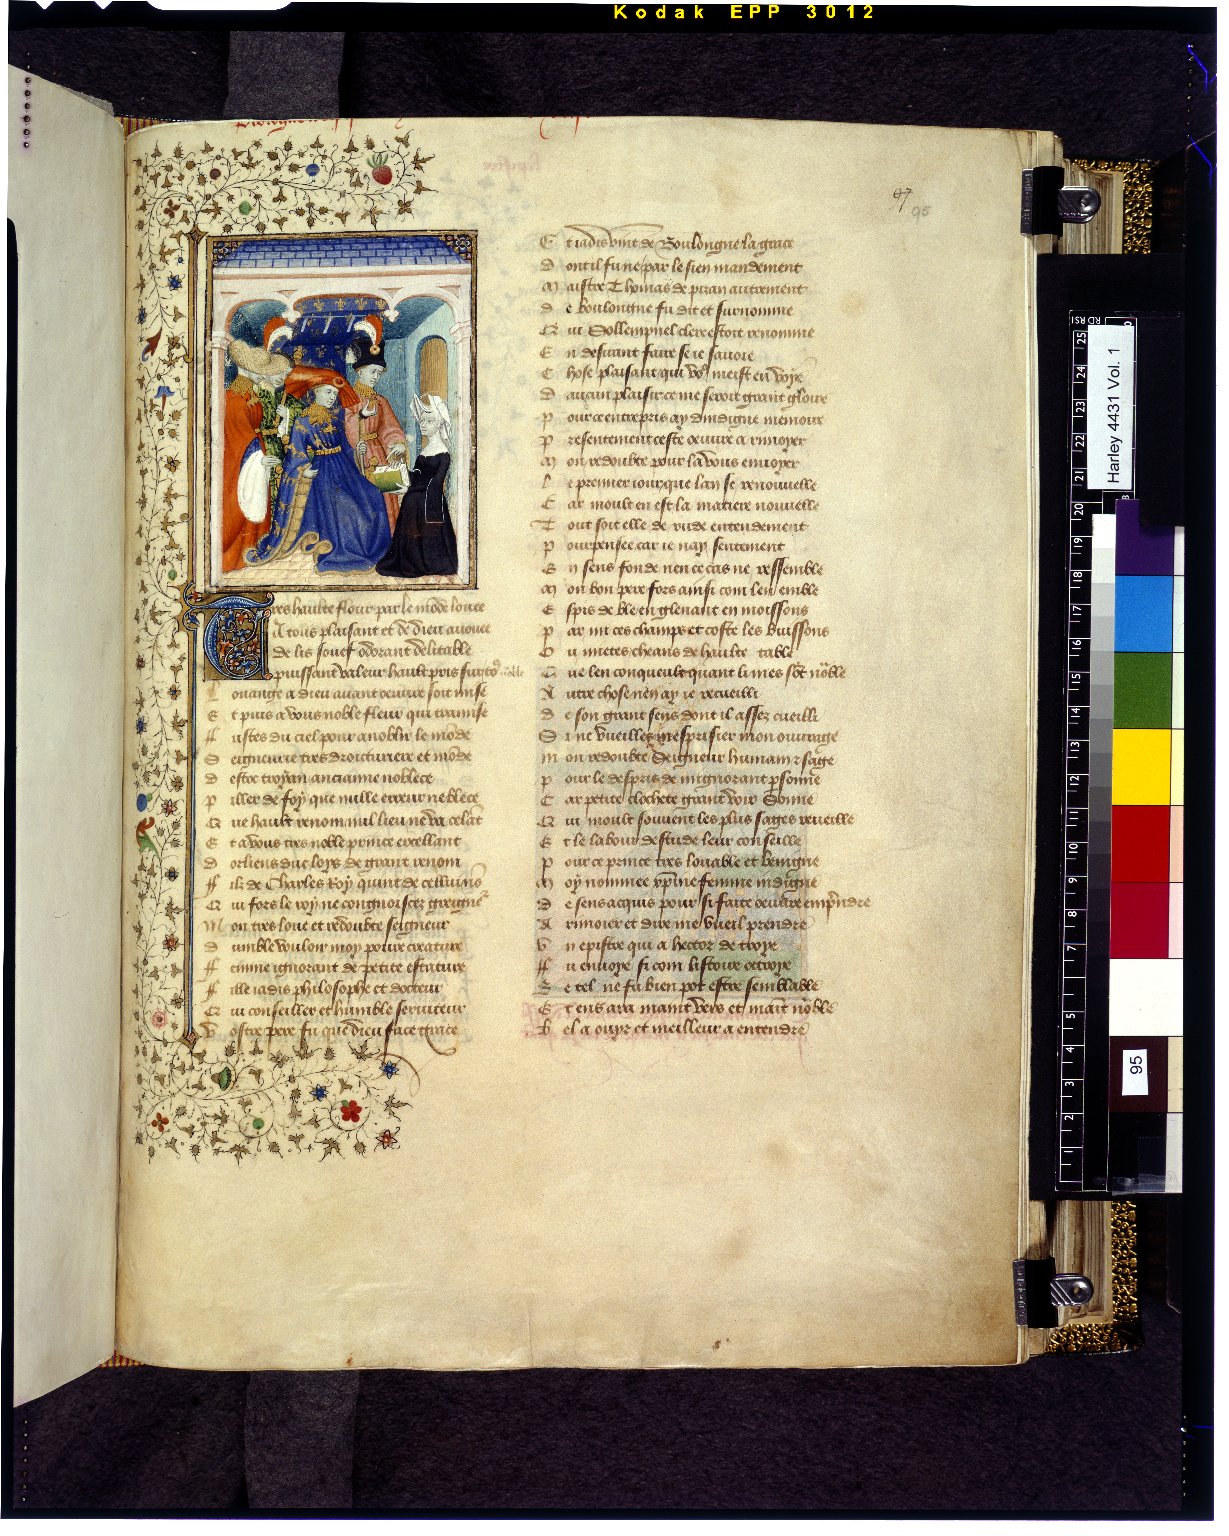 Kodak EPP 3012
97
95
Tres haulte flour par le monde louee
A tous plaisant et de dieu auouee
de lis souef odorant delitable
puissant valeur hault pris sur to9 noble
Louange a dieu auant oeuure soit mise
Et puis a vous noble fleur qui transmise
ffustes du ciel pour anoblir le monde
Seigneurie tres droicturiere et monde
destoc troyan ancianne noblece
piller de foy que nulle erreur ne blece
Que hault renom nul lieu ne va celant
Et a vous tres noble prince excellant
dorliens duc loys de grant renom
ffilz de Charles Roy quint de cellui nō
Qui fors le roy ne congnoiscez greigne2
Mon tres loue et redoubte seigneur
dumble vouloir moy poure creature
ffemme ignorant de petite estature
ffille iadis philosophe et docteur
Qui conseiller et humble seruiteur
Vostre pere fu que dieu face grace
Et iadis vint de Boulongne la grace
dont il fu ne par le sien mandement
Maistre Thomas de pizan autrement
de boulongne fu dit et surnomme
Qui Sollempnel clerc estoit renomme
En desirant faire se ie sauoie
Chose plaisant qui vo9 meist en voye
daucun plaisir ce me seroit grant gloire
pour ce entrepris ay dindigne memoire
presentement ceste oeuure a rimoyer
Mon redoubte pour la vous enuoyer
le premier iour que lan se renouuelle
Car moult en est la matiere nouuelle
Tout soit elle de rude entendement
pourpensee car ie nay sentement
En sens fonde nen ce cas ne ressemble
Mon bon pere fors ainsi com len emble
Espis de ble en glenant en moissons
par mi ces champs et coste les buissons
Ou mietes cheans de haulte table
Que len conqueult quant li mes sōt nōble
Autre chose nen ay ie recueilli
de son grant sens dont il assez cueilli
Si ne vueillez mesprisier mon ouurage
mon redoubte Seigneur humain z sage
pour le despris de mignorant psonne
Car petite clochete grant voix Sonne
Qui moult souuent les plus sages reueille
Et le labour destude leur conseille
pour ce prince tres louable et benigne
Moy nommee xpine femme indigne
de sens acquis pour si faitte oeuure emprēdre
A rimoier et dire me vueil prendre
Vn epistre qui a hector de troye
ffu enuoye si com listoire ottroye
Se tel ne fu bien pot estre semblable
Et ens ara maint vers et maīt nōble
bel a ouyr et meilleur a entendre
Harley 4431 Vol. 1
95
25
24
23
22
21
20
19
18
17
16
15
14
13
12
11
10
9
8
7
6
5
4
3
2
1